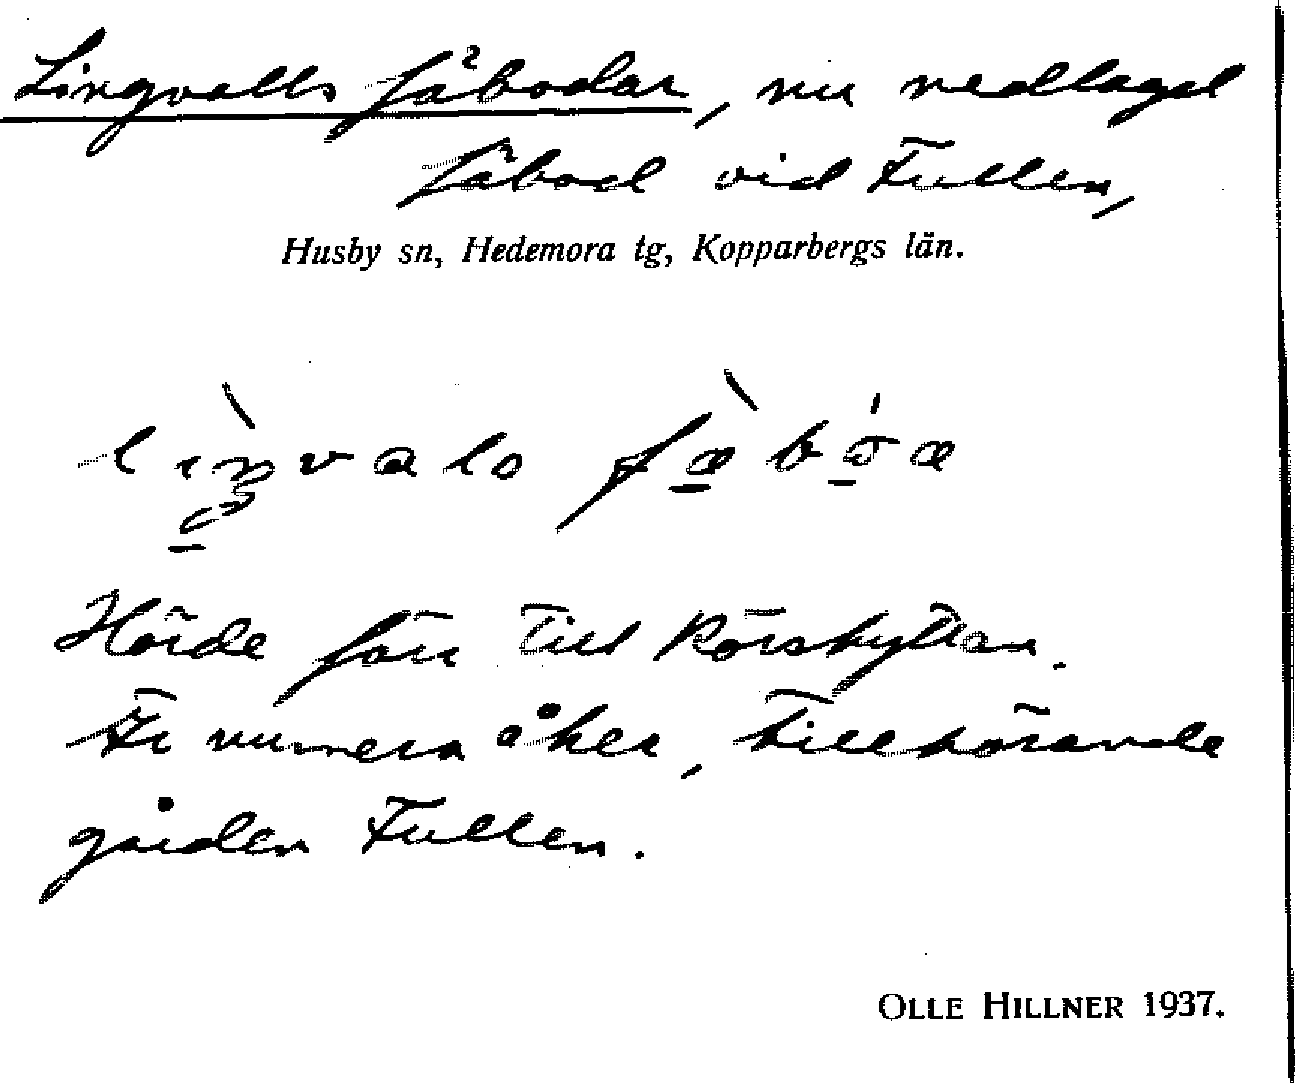 Lingvalls fäbodar, nu nedlagd
fäbod vid Fullen,
Husby sn, Hedemora tg, Kopparbergs län.
Hörde förr till Rörshyttan.
Är numera åker, tillhörande
gården Fullen.
OLLE HILLNER 1937.